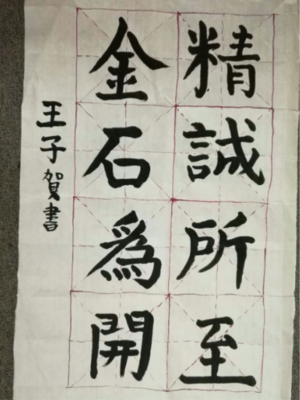 精誠所至
金石為開
王子賀書